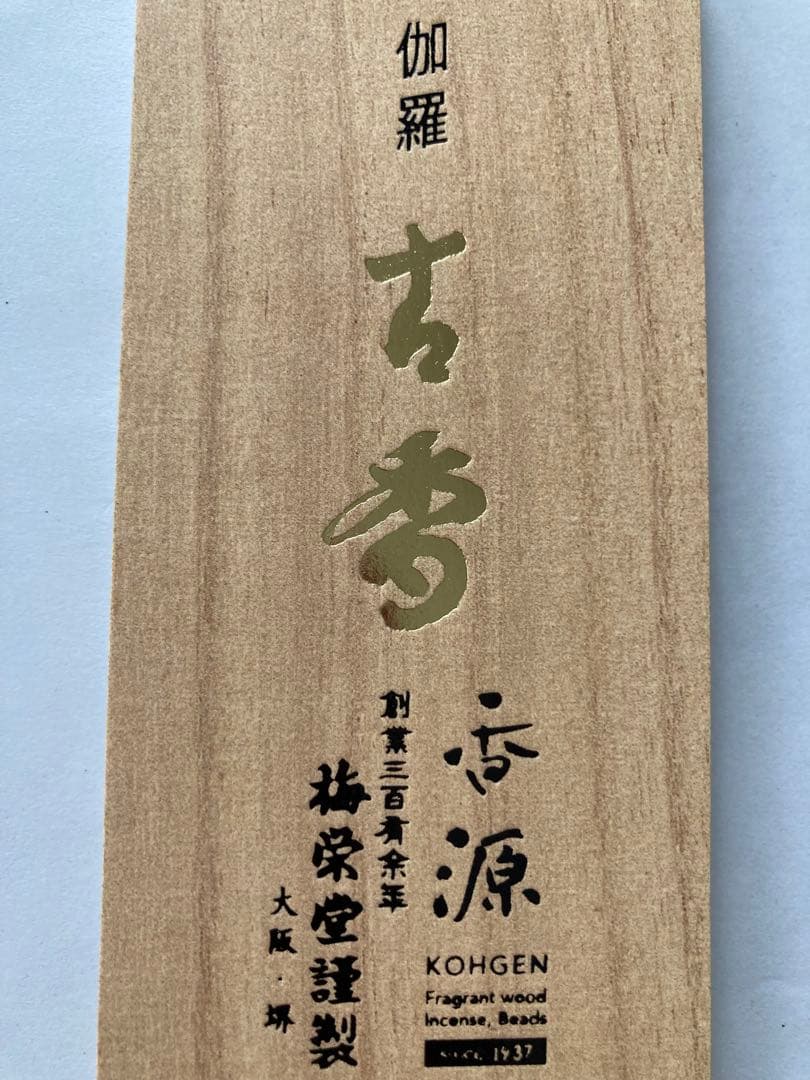 伽羅
古香
香源
KOHGEN
Fragrant wood
Incense, Beads
SINCE 1937
創業三百有余年
梅栄堂謹製
大阪・堺